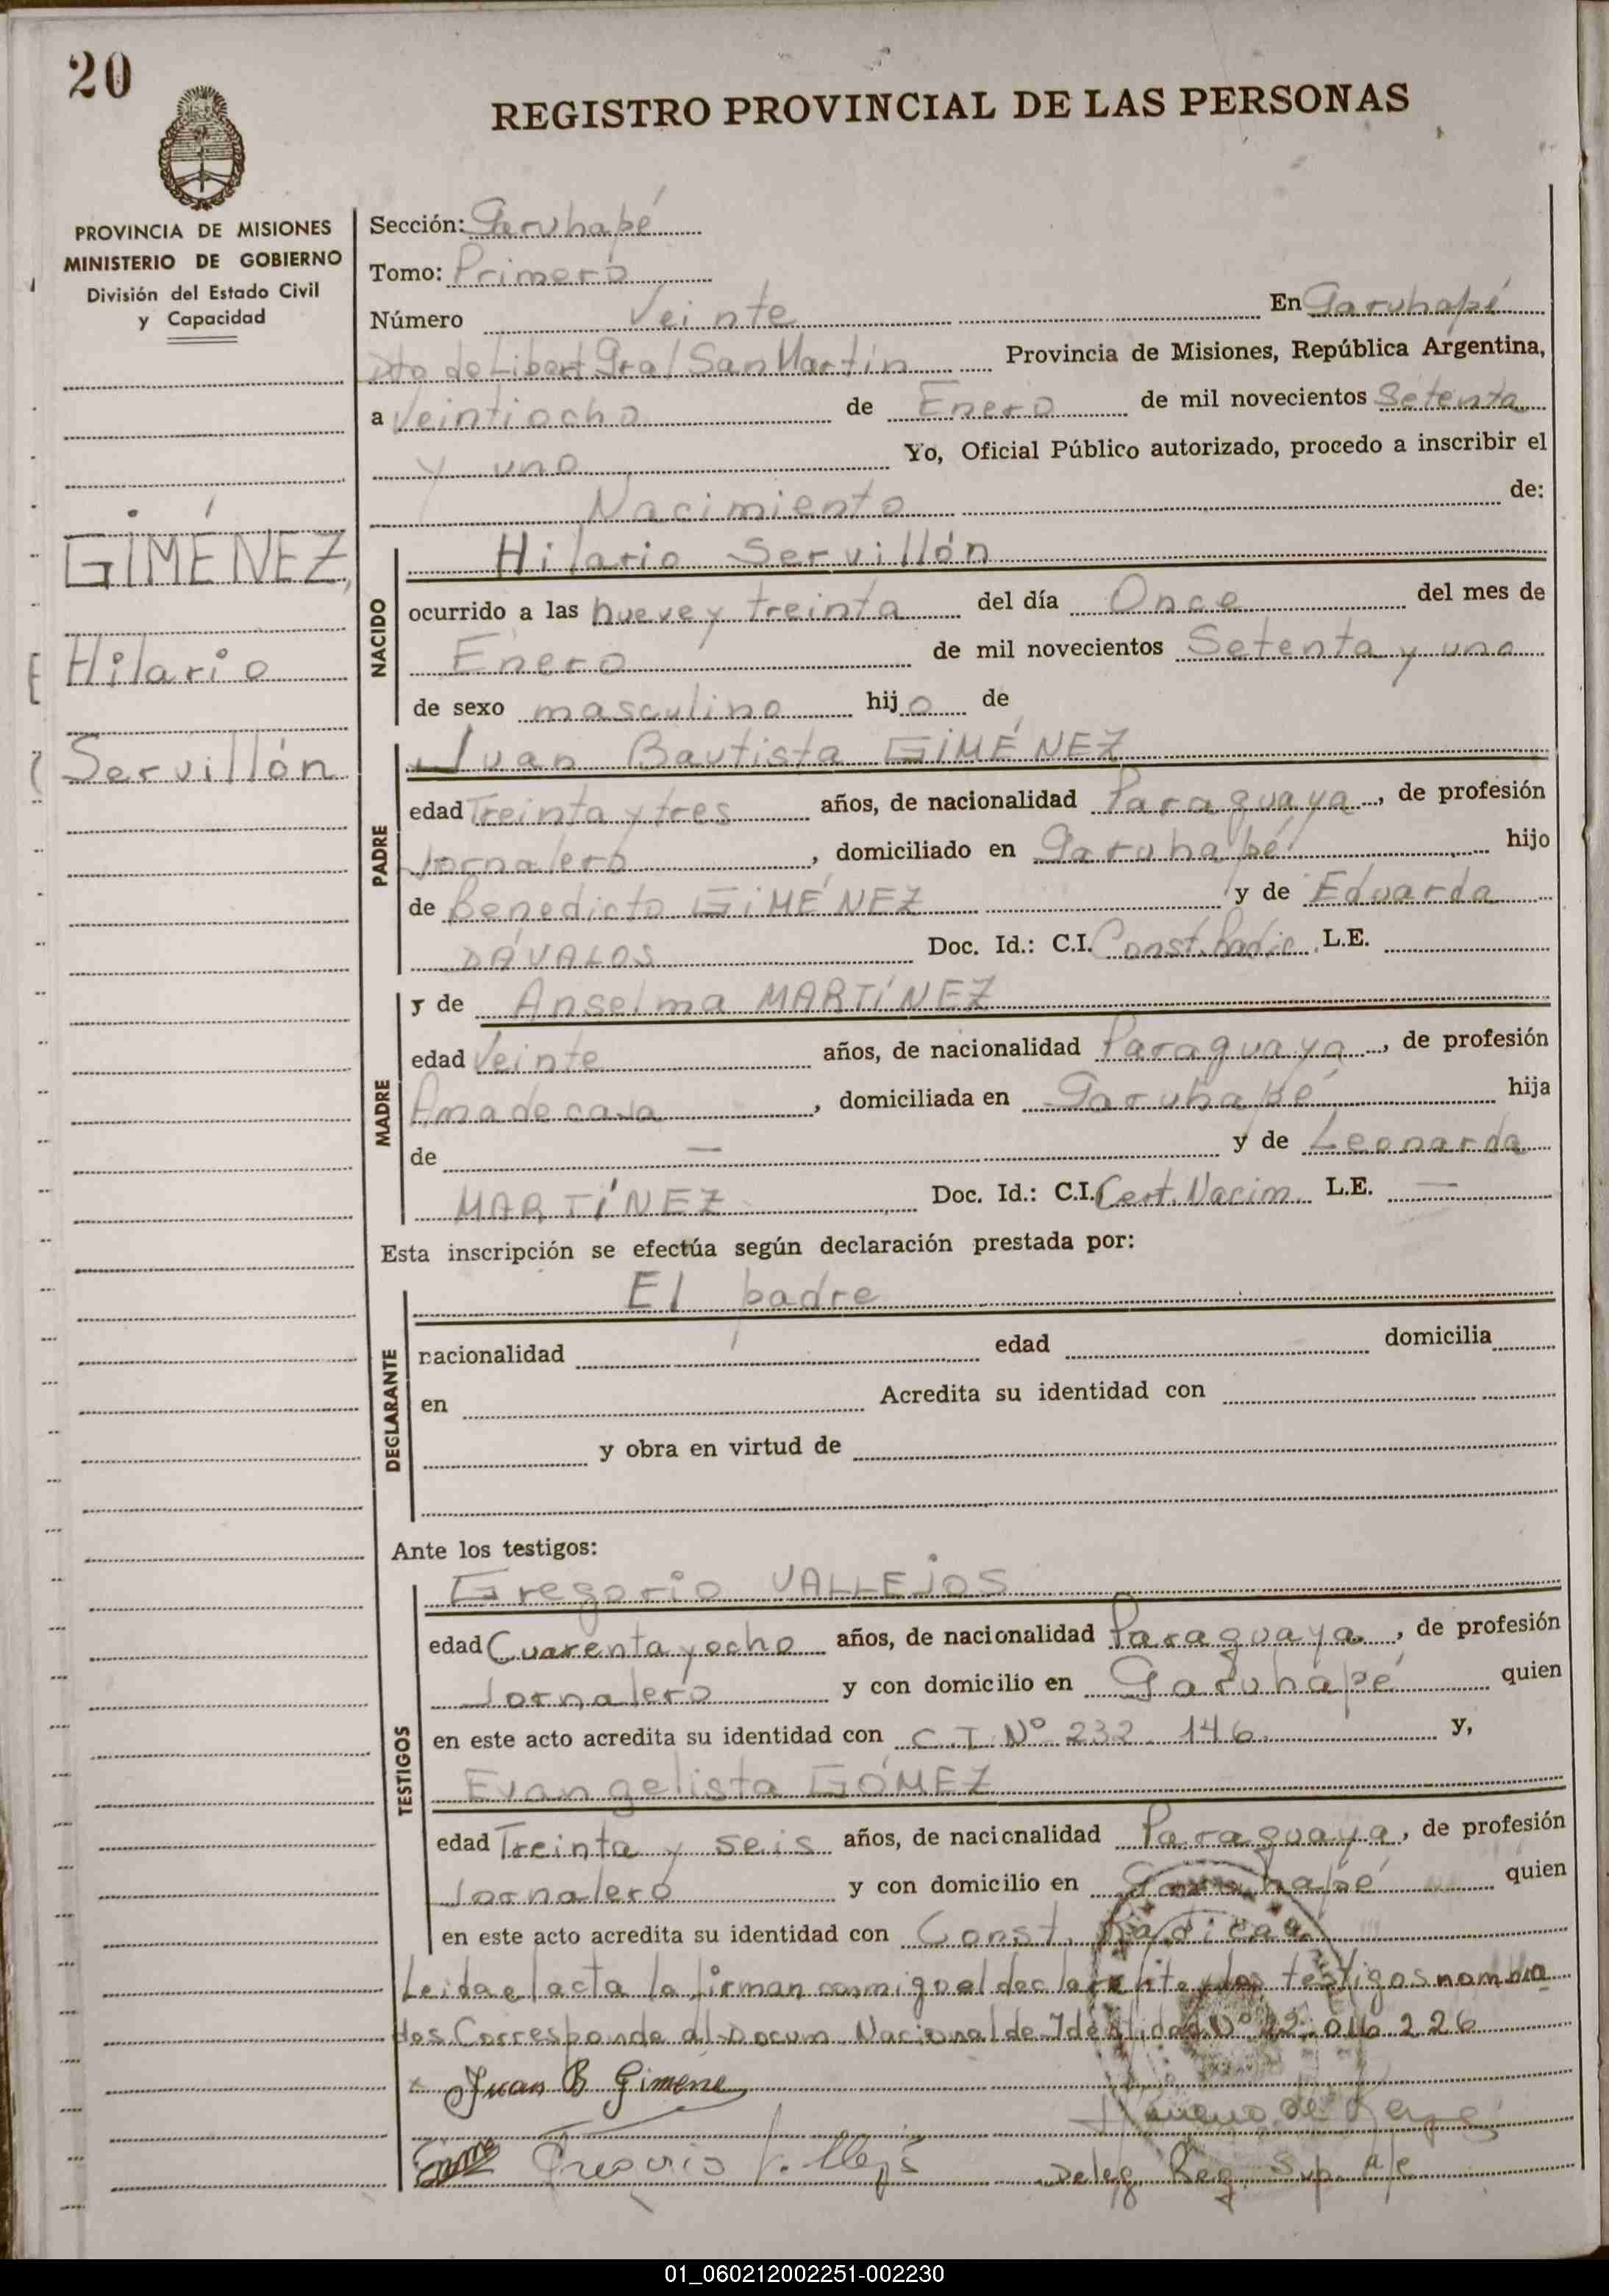 20
REGISTRO PROVINCIAL DE LAS PERSONAS
PROVINCIA DE MISIONES
MINISTERIO DE GOBIERNO
División del Estado Civil
y Capacidad
GIMÉNEZ,
Hilario
Servillón
Sección: Garuhapé
Tomo: Primero
Número Veinte En Garuhapé
Dto de Libert. Gral San Martín Provincia de Misiones, República Argentina,
a Veintiocho de Enero de mil novecientos Setenta
y uno Yo, Oficial Público autorizado, procedo a inscribir el
Nacimiento de:
NACIDO
Hilario Servillón
ocurrido a las nueve y treinta del día Once del mes de
Enero de mil novecientos Setenta y uno
de sexo masculino hijo de
PADRE
Juan Bautista GIMÉNEZ
edad Treinta y tres años, de nacionalidad Paraguaya, de profesión
Jornalero, domiciliado en Garuhapé hijo
de Benedicto GIMÉNEZ y de Eduarda
DÁVALOS Doc. Id.: C.I. Const. Radic. L.E.
MADRE
y de Anselma MARTÍNEZ
edad Veinte años, de nacionalidad Paraguaya, de profesión
Ama de casa, domiciliada en Garuhapé hija
de — y de Leonarda
MARTÍNEZ Doc. Id.: C.I. Cert. Nacim. L.E. —
Esta inscripción se efectúa según declaración prestada por:
DECLARANTE
El padre
nacionalidad edad domicilia
en Acredita su identidad con
y obra en virtud de
Ante los testigos:
TESTIGOS
Gregorio VALLEJOS
edad Cuarenta y ocho años, de nacionalidad Paraguaya, de profesión
Jornalero y con domicilio en Garuhapé quien
en este acto acredita su identidad con C.I. Nº 232.146. y,
Evangelista GÓMEZ
edad Treinta y seis años, de nacionalidad Paraguaya, de profesión
Jornalero y con domicilio en Garuhapé quien
en este acto acredita su identidad con Const. Radicac.
Leida el acta la firman conmigo el declarante y los testigos nombra
dos Corresponde al Docum. Nacional de Identidad Nº 22.016.226
Juan B Gimene
Gregorio Vallejs
Deleg. Reg. Sup. a/c
01_060212002251-002230